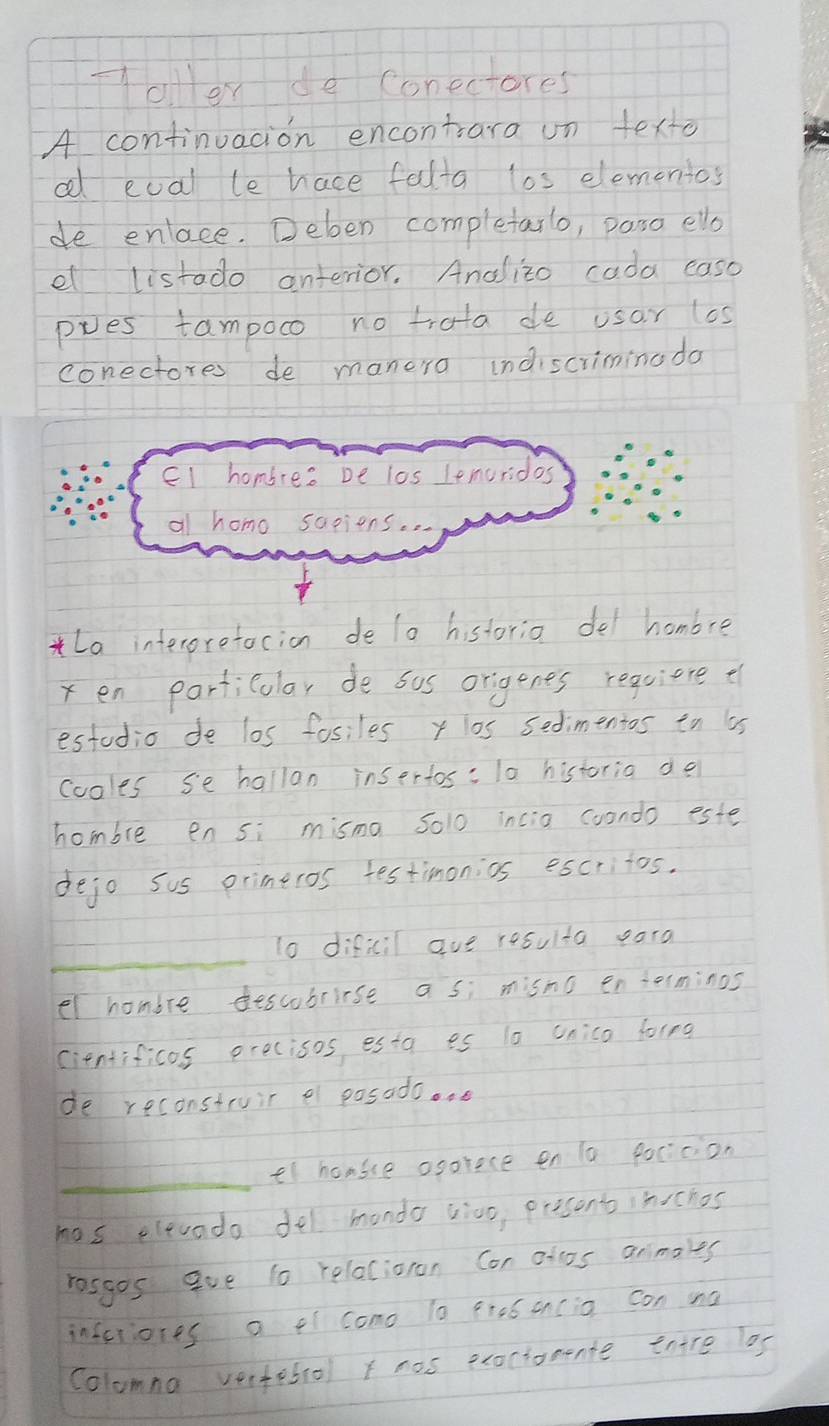 Taller de Conectores
A continuación encontrara un texto
al cual le hace falta los elementos
de enlace. Deben completarlo, para ello
el listado anterior. Analizo cada caso
pues tampoco no trata de usar los
conectores de manera indiscriminada
El hombre: De los lemuridos
al homo sapiens...
*La interpretacion de la historia del hombre
y en particular de sus origenes requiere el
estudio de los fosiles y los sedimentos en los
cuales se hallan insertos: la historia del
hombre en si misma solo incia cuando este
dejo sus primeros testimonios escritos.
__________ lo dificil que resulta para
el hombre descubrirse a si mismo en terminos
cientificos precisos, esta es la unica forma
de reconstruir el pasado...
__________ el hombre aparece en la posicion
mas elevada del mondo vivo, presenta muchos
rasgos que lo relacionan con otros animales
inferiores a el como la presencia con na
Columna vertebral y mas exactamente entre los